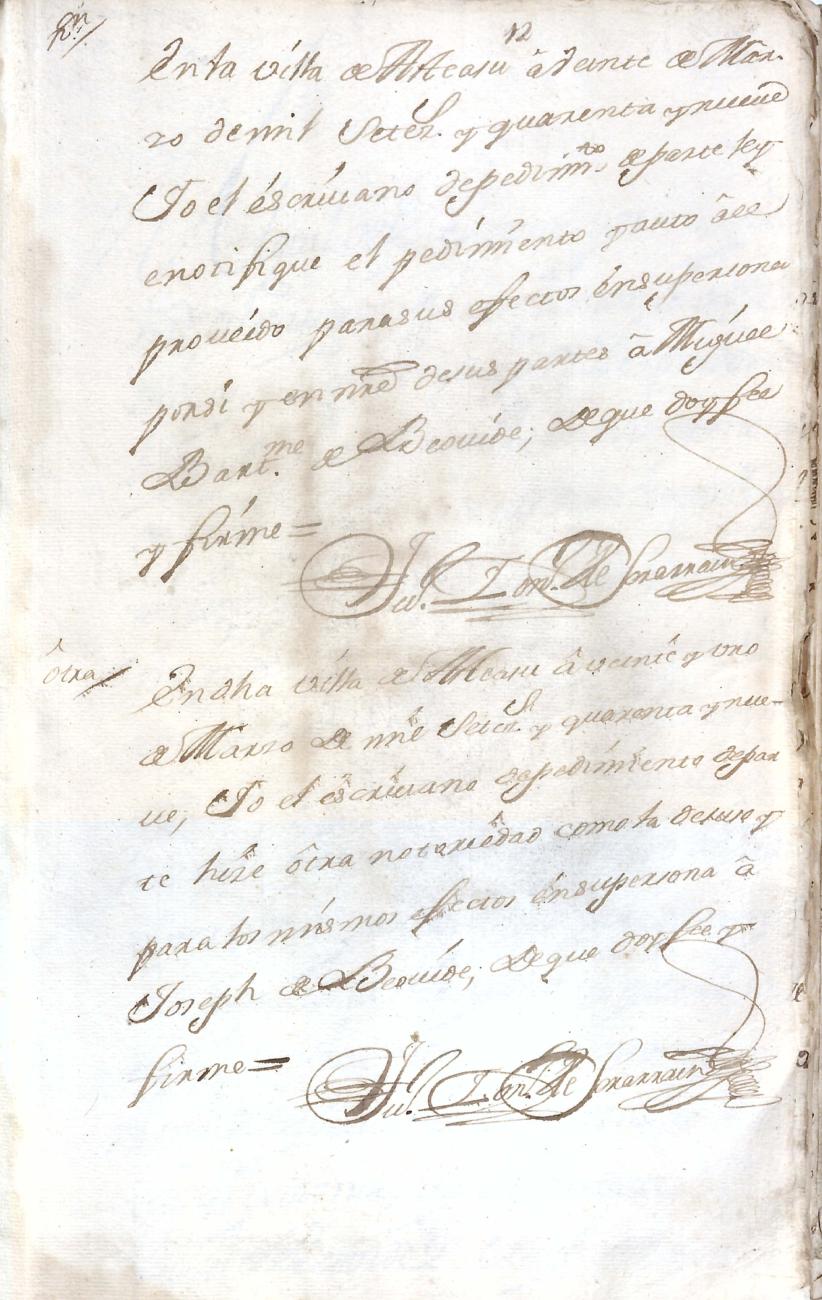 12
En la villa de Atteasu â veinte de Mar-
zo de mil Setez.s y quarenta y nueue
Yo el éscriuano de pedim.to de parte ley
e notifique el pedimiento y auto â el
proueido para sus efectos én su persona
por si y en nre de sus partes â Miguel
Bart.me de Beouide; de que doy fee
y firme =
Ju.
ôtra /
En dha villa de Atteasu â veinte y uno
de Marzo de mil Setez.s y quarenta y nue-
ue, Yo el escriuano de pedimiento de par
te hize ôtra notoriedad como la desuso y
para los mismos efectos én su persona â
Joseph de Beouide; de que doy fee y
firme =
Ju.